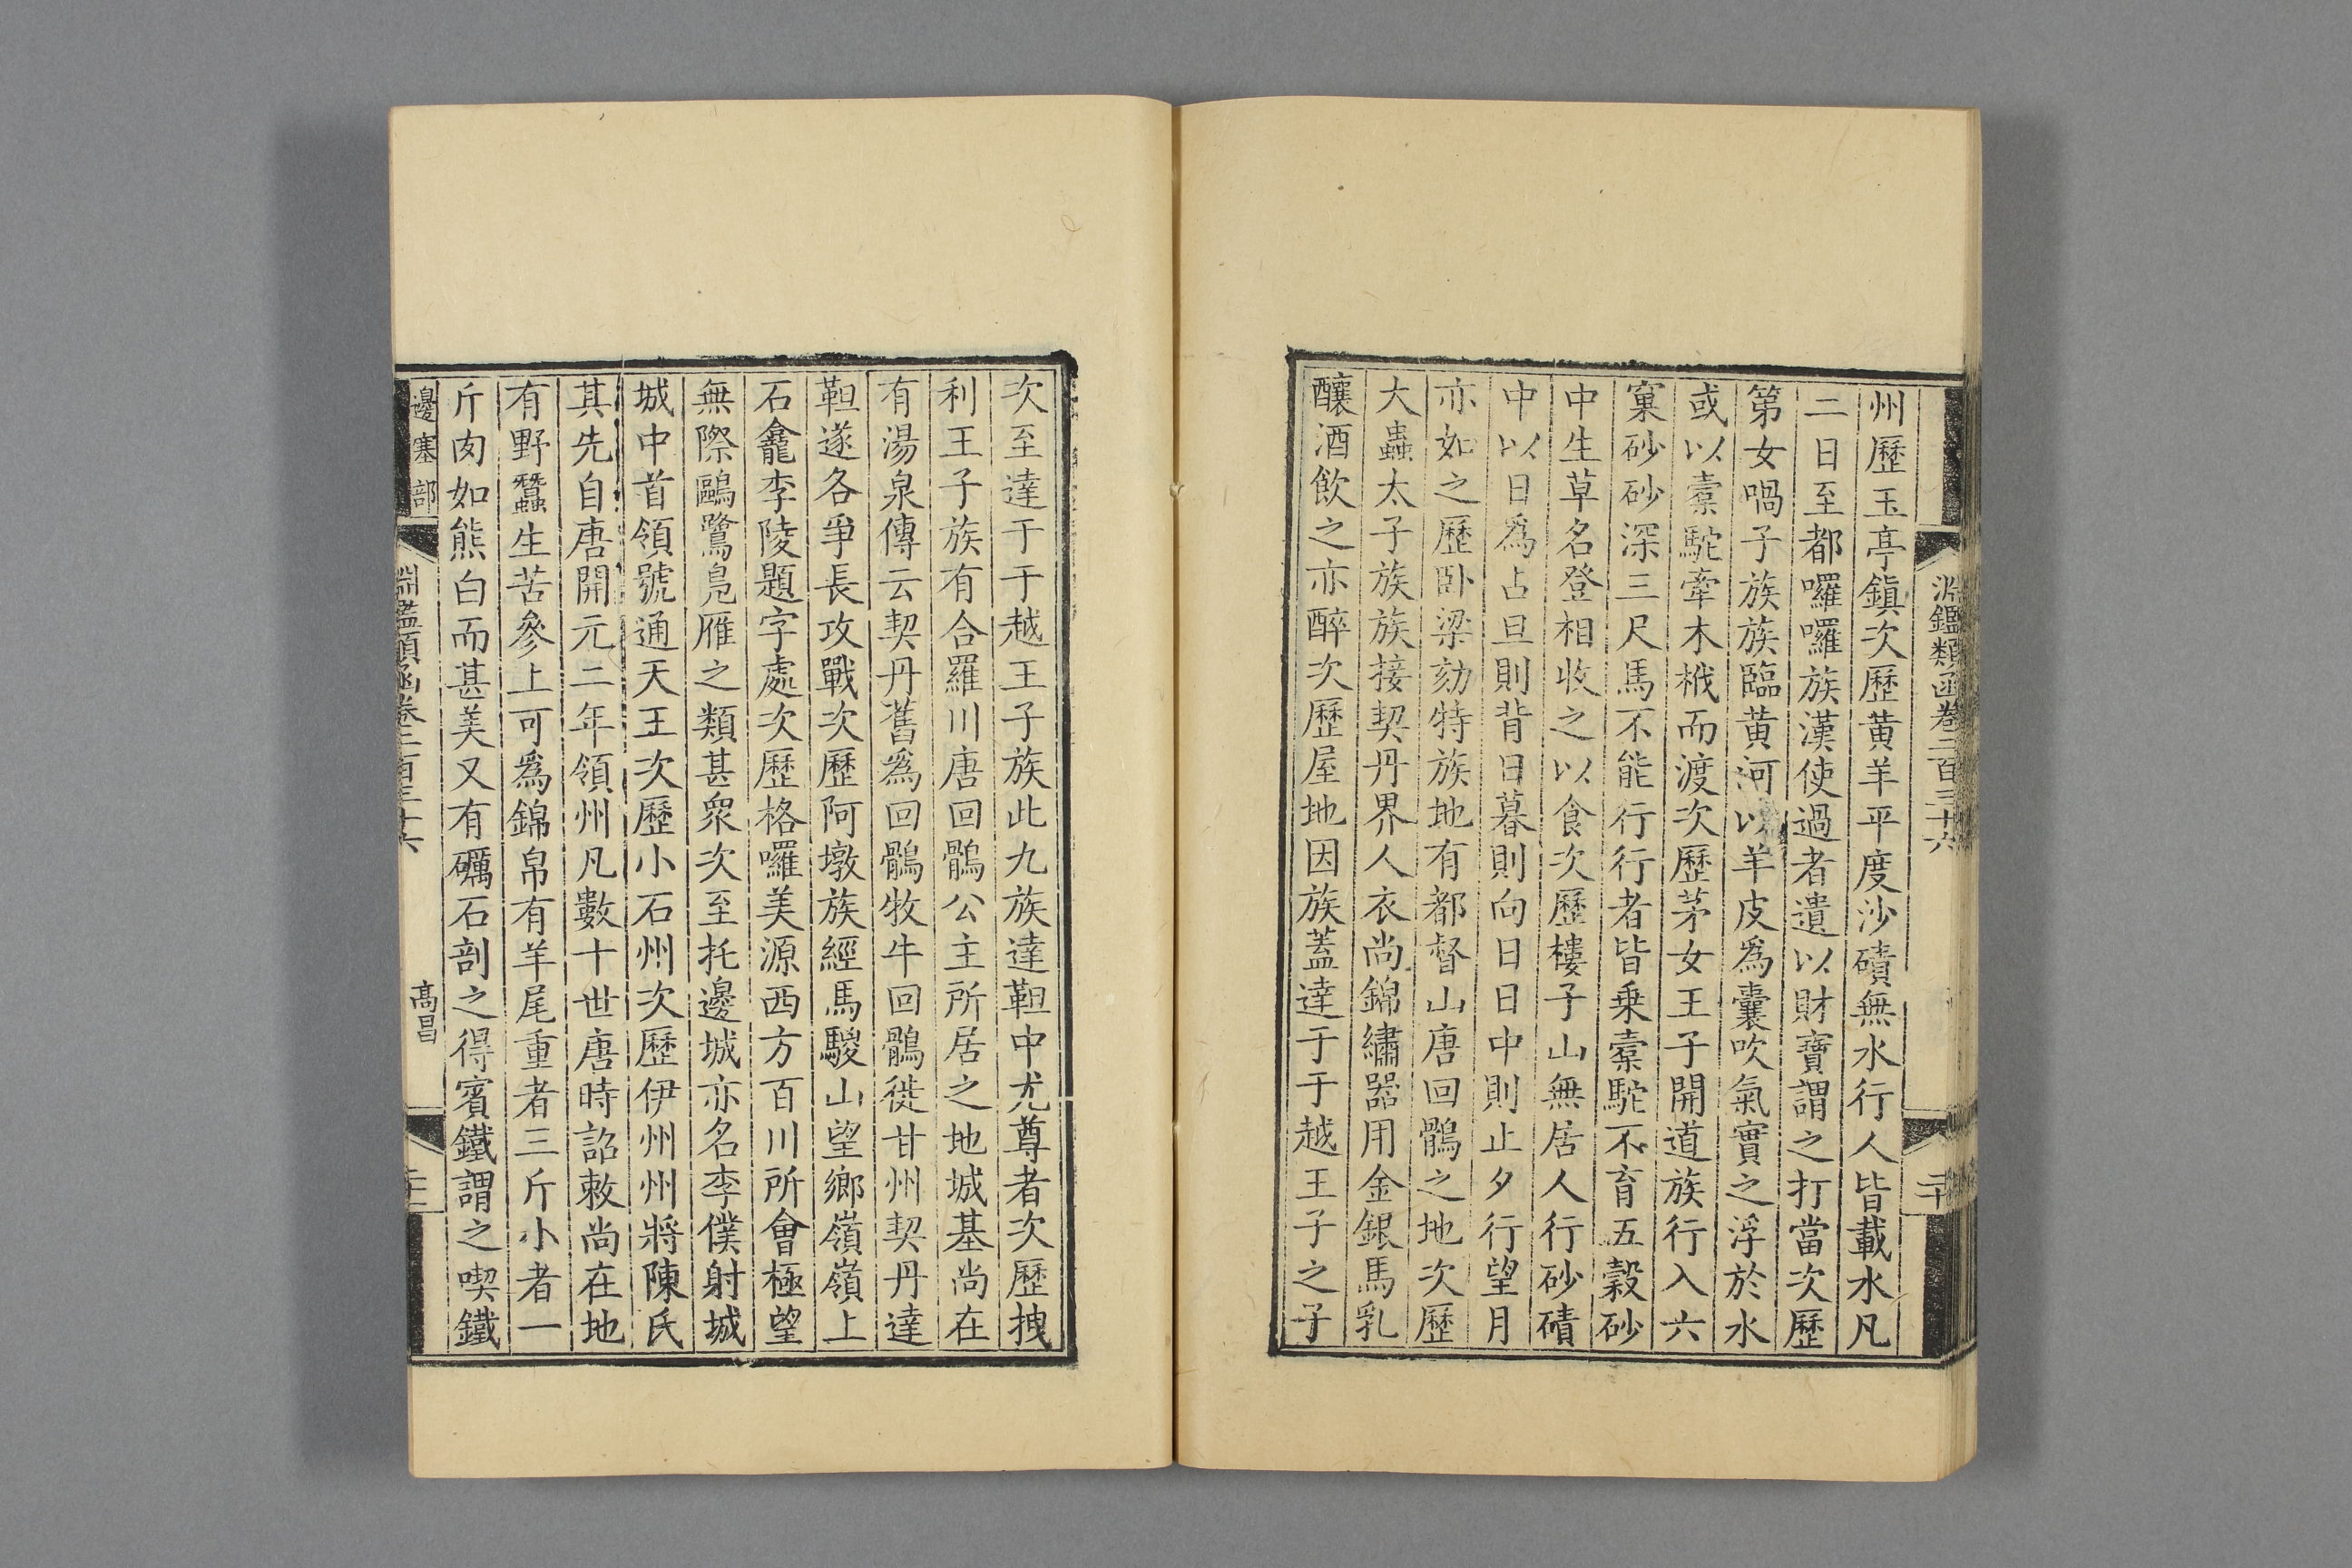 淵鑑類函卷二百三十六
二十
州歷玉亭鎮次歷黄羊平度沙磧無水行人皆載水凡
二日至都囉囉族漢使過者遺以財寶謂之打當次歷
第女喎子族族臨黄河以羊皮爲囊吹氣實之浮於水
或以橐駝牽木栰而渡次歷茅女王子開道族行入六
窠砂砂深三尺馬不能行行者皆乗橐駝不育五穀砂
中生草名登相收之以食次歷樓子山無居人行砂磧
中以日爲占旦則背日暮則向日日中則止夕行望月
亦如之歷卧梁劾特族地有都督山唐回鶻之地次歷
大蟲太子族族接契丹界人衣尚錦繡器用金銀馬乳
釀酒飲之亦醉次歷屋地因族蓋達于于越王子之子
次至達于于越王子族此九族達靼中尤尊者次歷拽
利王子族有合羅川唐回鶻公主所居之地城基尚在
有湯泉傳云契丹舊爲回鶻牧牛回鶻徙甘州契丹達
靼遂各爭長攻戰次歷阿墩族經馬騣山望鄉嶺嶺上
石龕李陵題字處次歷格囉美源西方百川所會極望
無際鷗鷺鳧雁之類甚衆次至托邊城亦名李僕射城
城中首領號通天王次歷小石州次歷伊州州將陳氏
其先自唐開元二年領州凡數十世唐時詔敕尚在地
有野蠶生苦參上可爲錦帛有羊尾重者三斤小者一
斤肉如熊白而甚美又有礪石剖之得賓鐵謂之喫鐵
邊塞部
淵鑑類函卷二百三十六
高昌